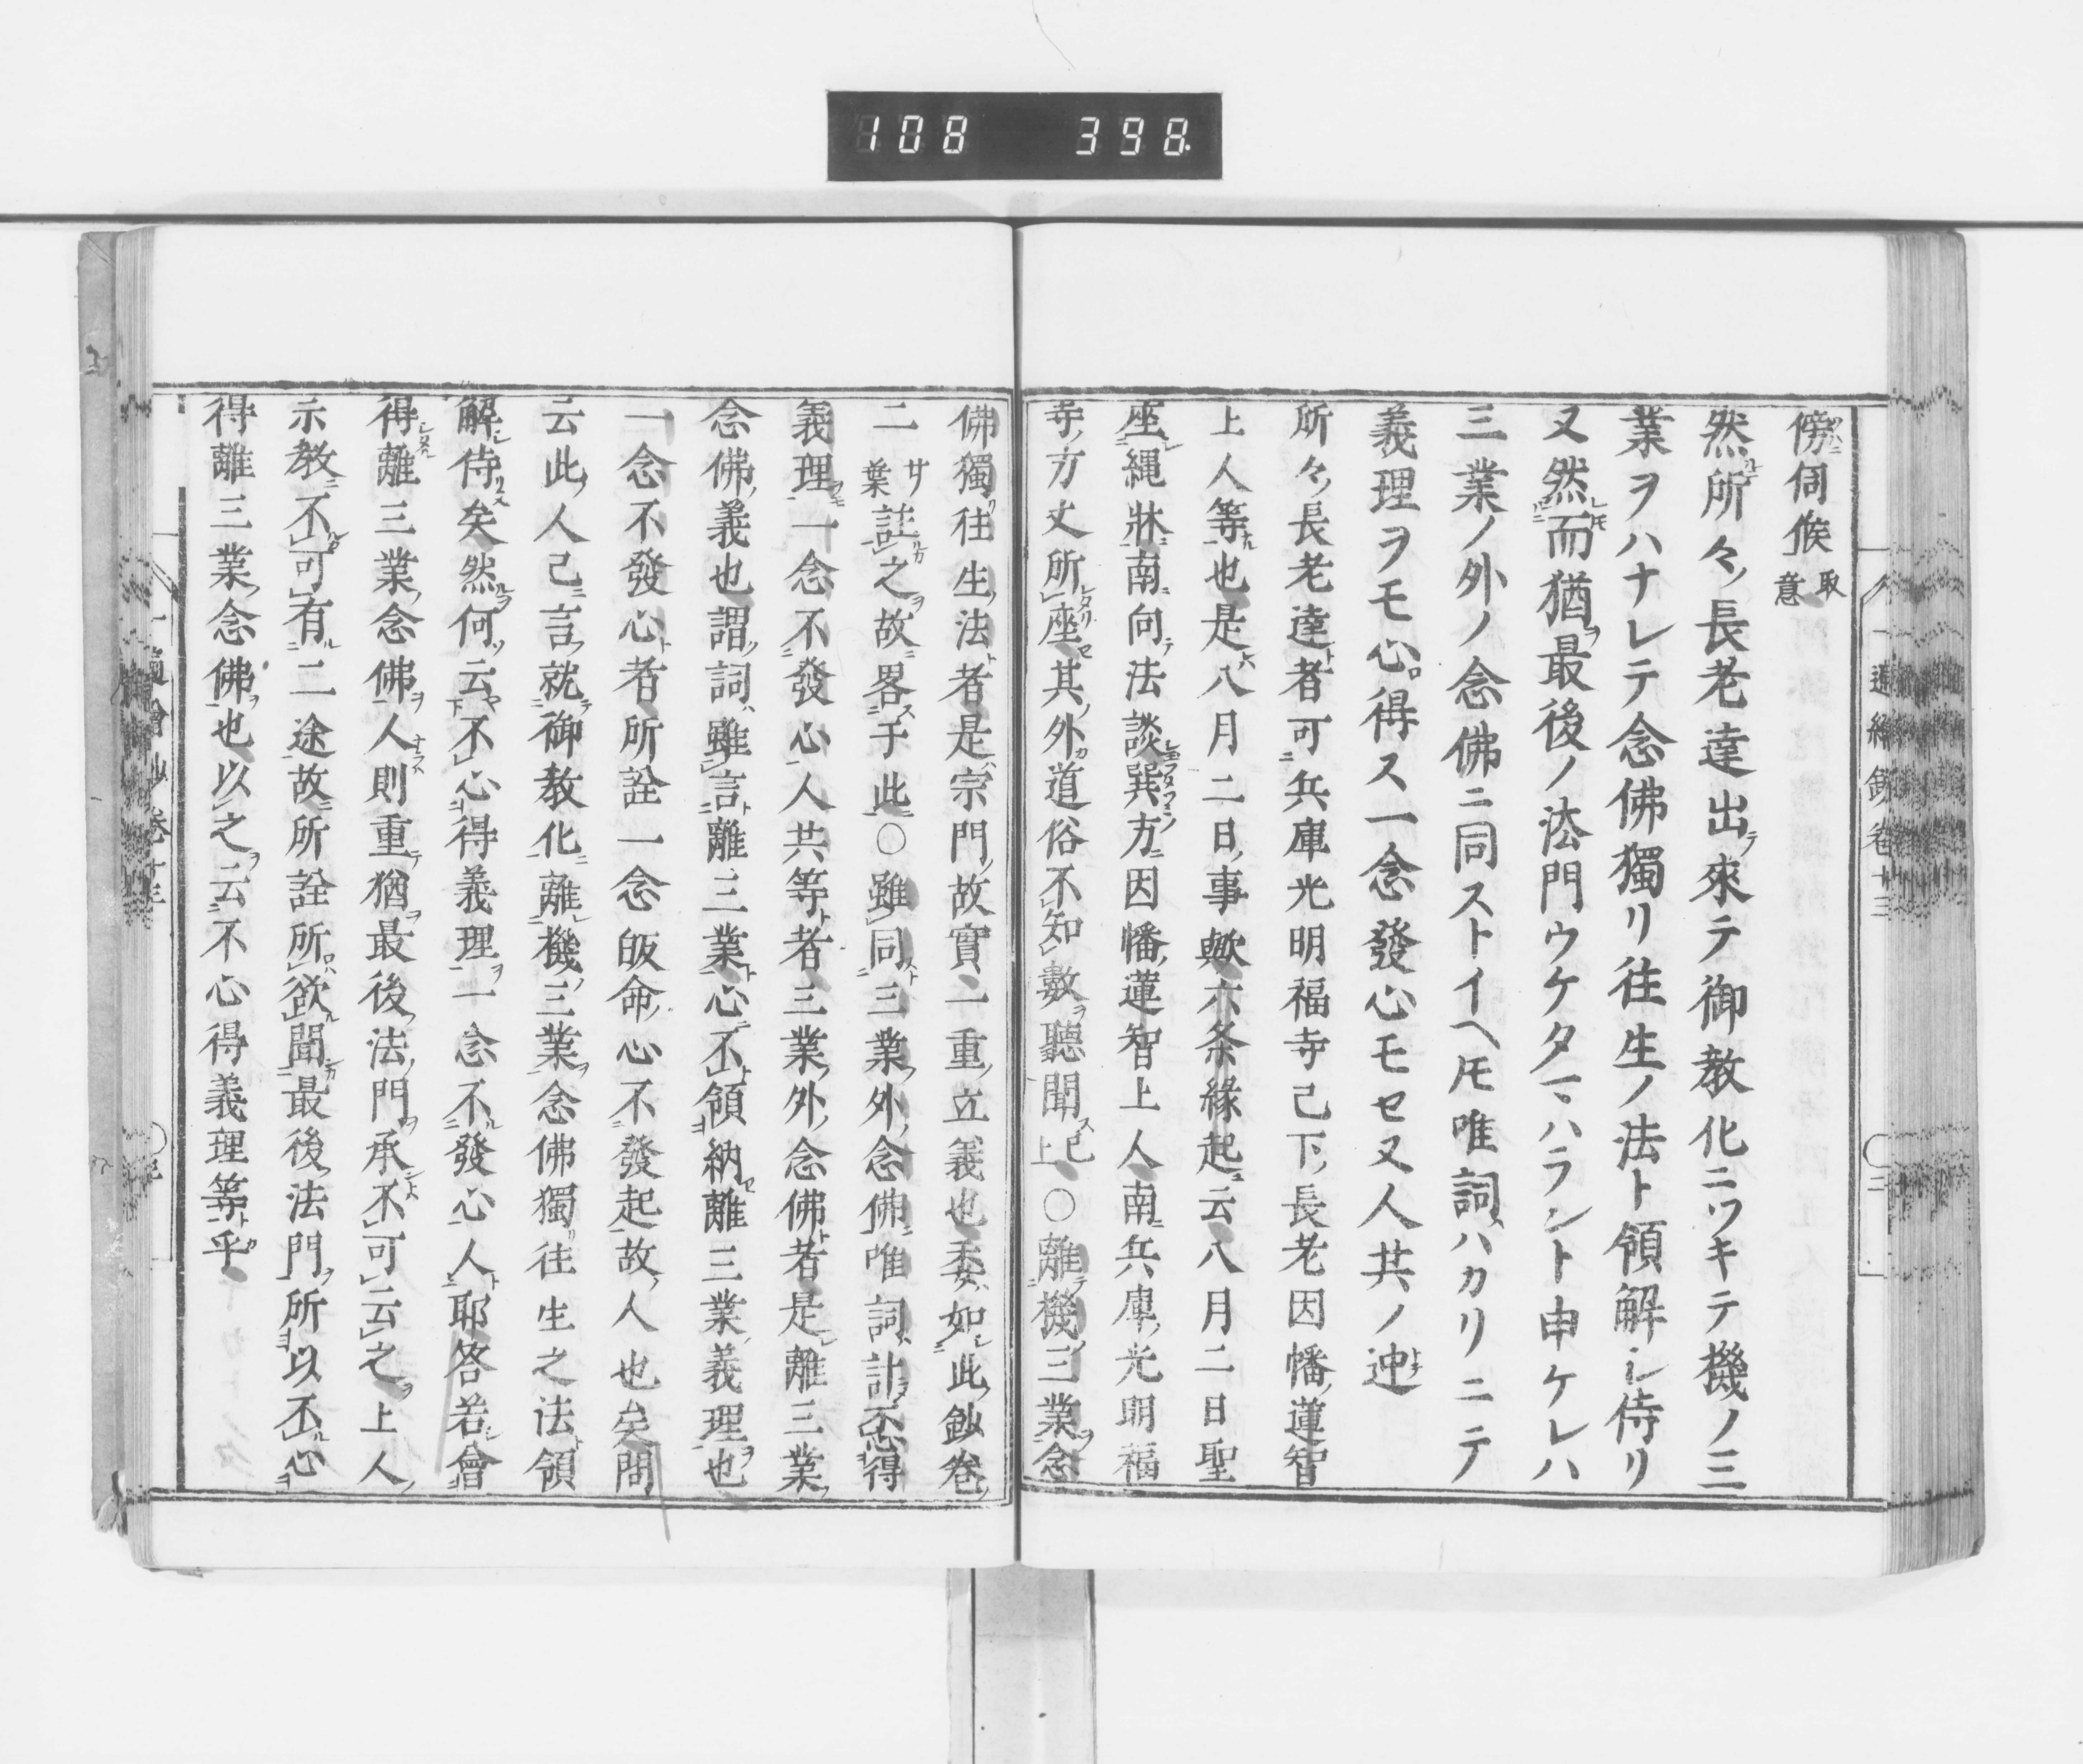 108 398.
傍伺候取意
然ルニ所々ノ長老達出テ來テ御教化ニツキテ機ノ三
業ヲハナレテ念佛獨リ往生ノ法ト領解シ侍リ
又然而猶最後ノ法門ウケタマハラント申ケレハ
三業ノ外ノ念佛ニ同ストイヘトモ唯詞ハカリニテ
義理ヲモ心得ス一念發心モセヌ人共ノ
所々長老達者可兵庫光明福寺已下長老因幡蓮智
上人等也是八月二日事歟六条緣起云八月二日聖
座繩牀南向法談巽方因幡蓮智上人南兵庫光明福
寺方丈所座其外道俗不知數聽聞已上○離機三業念
佛獨往生法者是宗門故實一重立義也委如此鈔卷
二サ葉註之故畧于此○雖同三業外念佛唯詞計不得
義理一念不發心人共等者三業外念佛者是離三業
念佛義也謂詞雖言離三業心不領納離三業義理也
一念不發心者所詮一念皈命心不發起故人也矣問
云此人已言就御教化離機三業念佛獨往生之法領
解侍矣然何云不心得義理一念不發心人耶答若會
得離三業念佛人則重猶最後法門承不可云之上人
示教不可有二途故所詮所欲聞最後法門所以不心
得離三業念佛也以之云不心得義理等乎